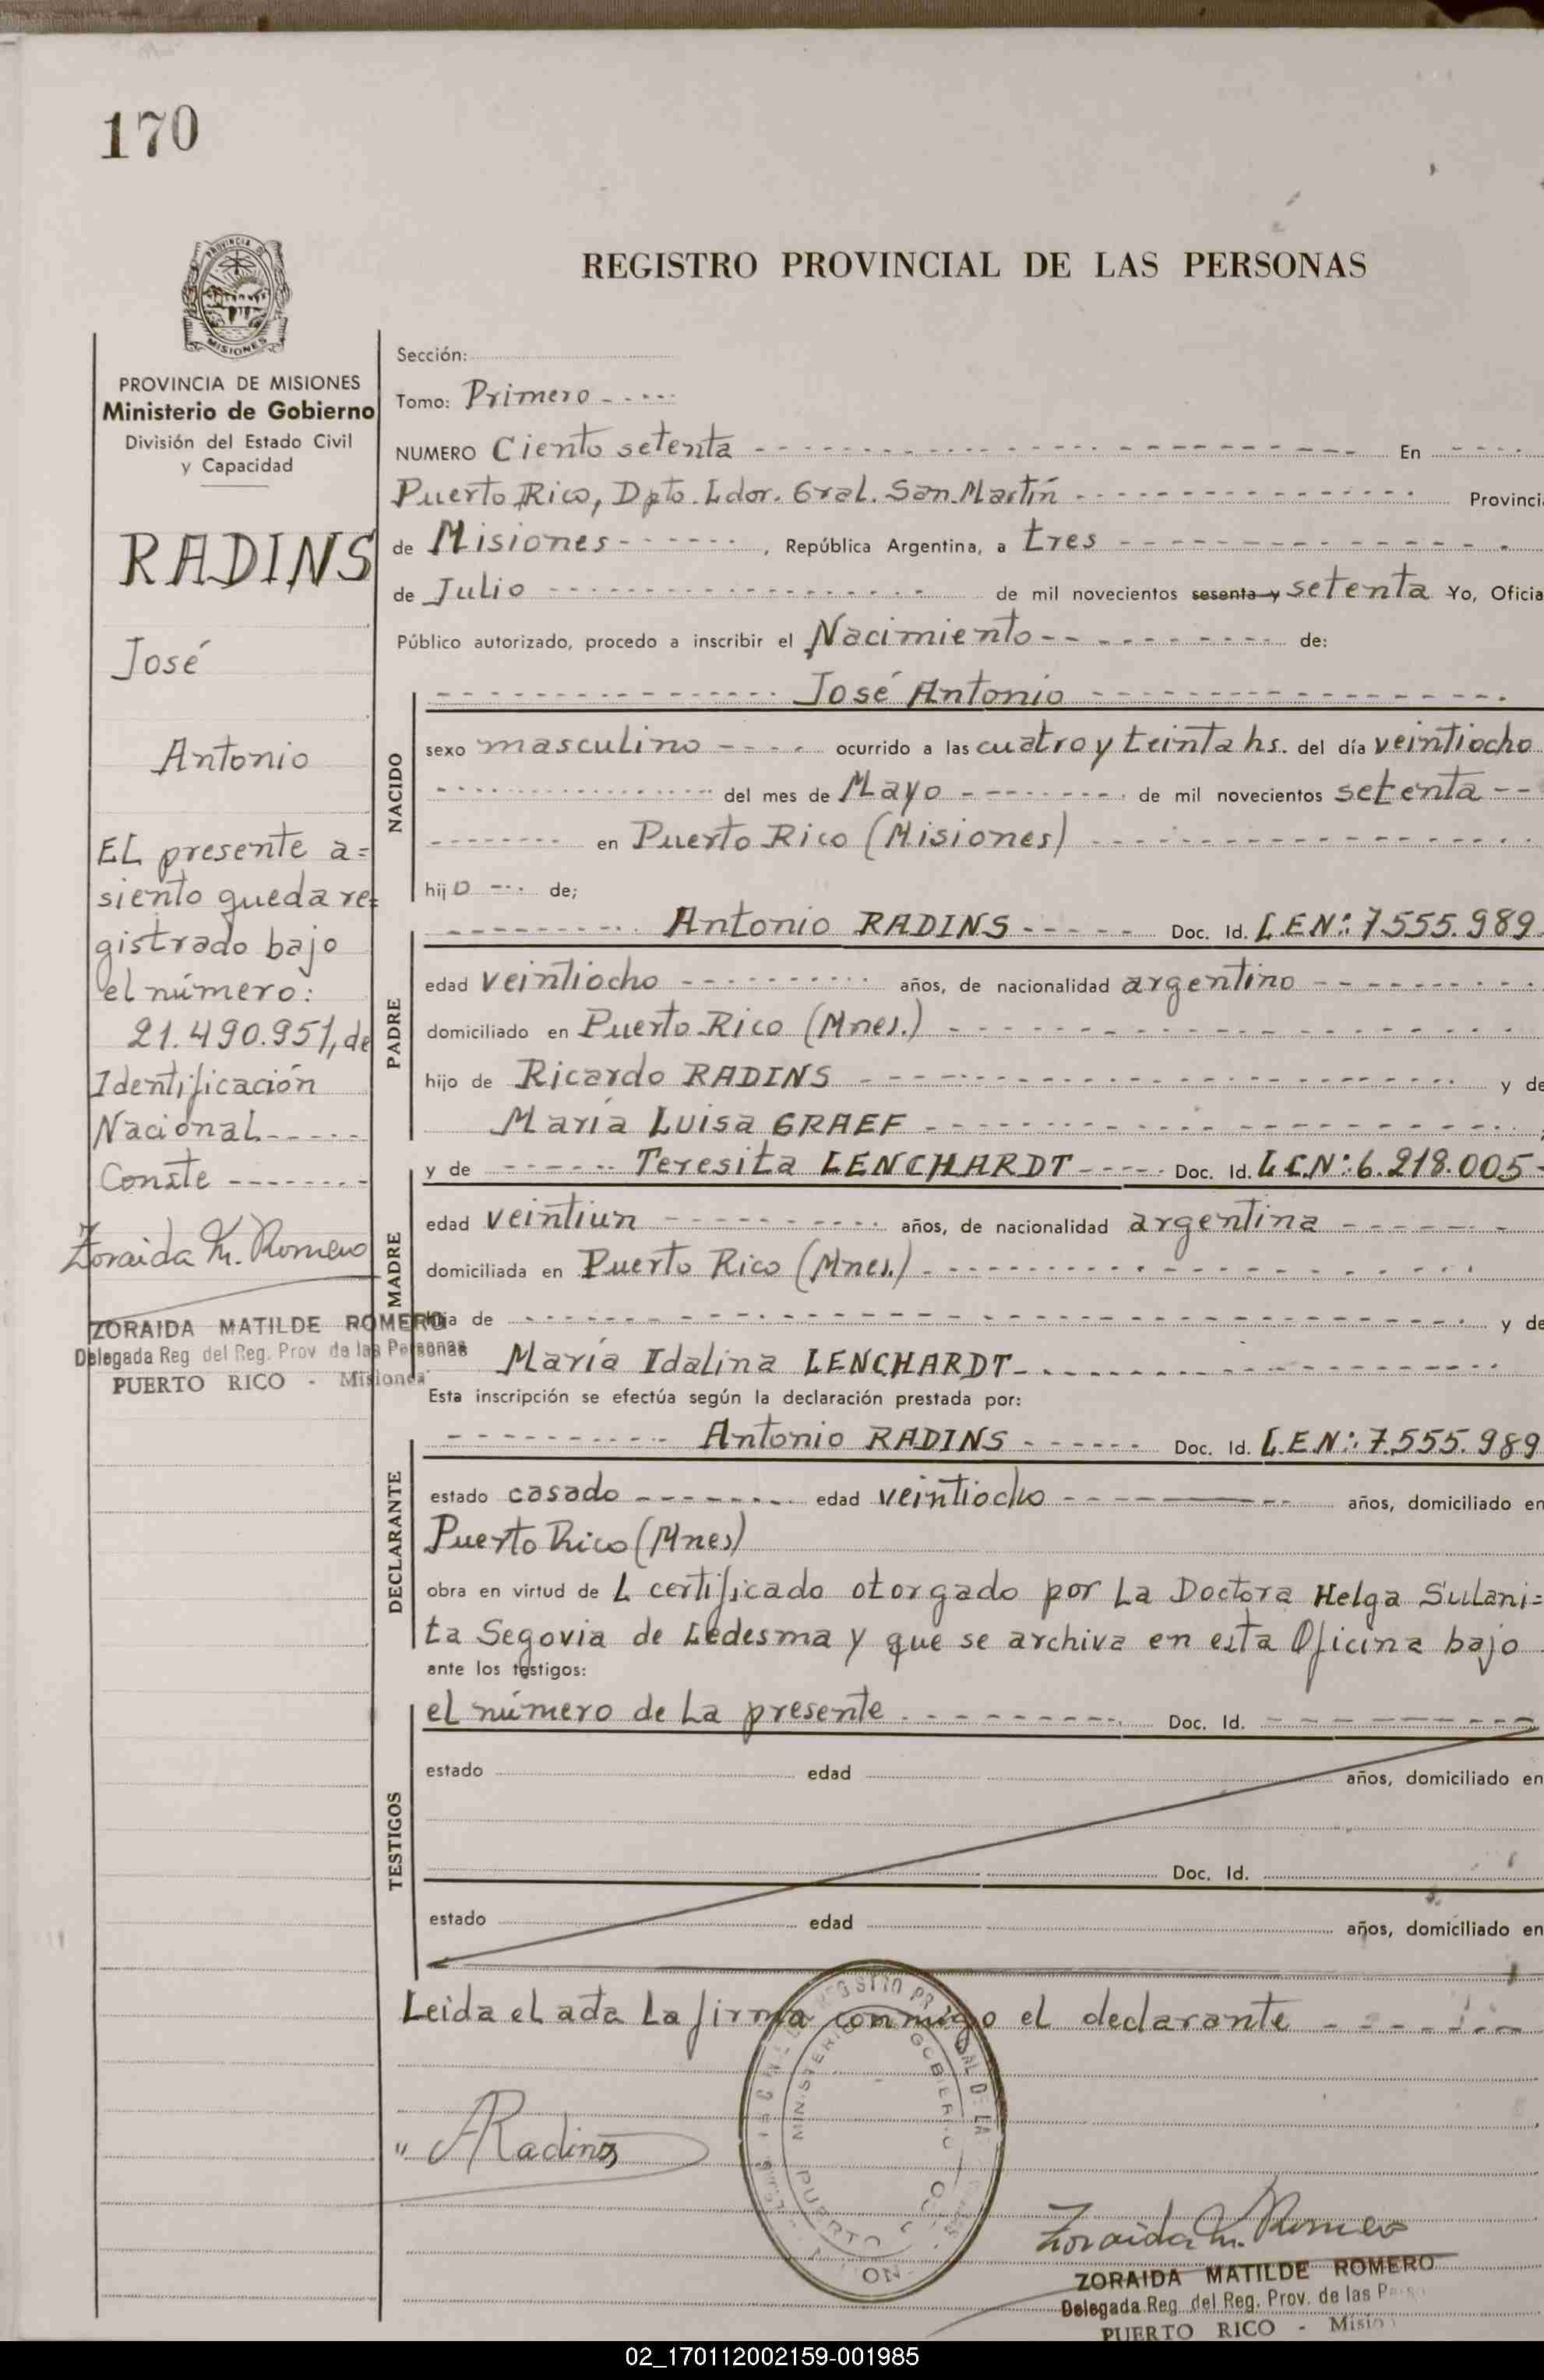 170
PROVINCIA DE MISIONES
Ministerio de Gobierno
División del Estado Civil
y Capacidad
RADINS
José
Antonio
EL presente a=
siento queda re=
gistrado bajo
el número:
21.490.951, de
Identificación
Nacional-----
Conste -------
Zoraida M. Romero
ZORAIDA MATILDE ROMERO
Delegada Reg del Reg. Prov de las Personas
PUERTO RICO - Misiones
REGISTRO PROVINCIAL DE LAS PERSONAS
Sección:
Tomo: Primero -----
NUMERO Ciento setenta ---------- En -----
Puerto Rico, Dpto. Ldor. Gral. San Martín ---------- Provinci
de Misiones ------, República Argentina, a tres ----------
de Julio ---------- de mil novecientos sesenta y setenta Yo, Oficia
Público autorizado, procedo a inscribir el Nacimiento ---------- de:
NACIDO
---------- José Antonio ----------
sexo masculino ---- ocurrido a las cuatro y teinta hs. del día veintiocho
---------- del mes de Mayo -------- de mil novecientos setenta --
-------- en Puerto Rico (Misiones) ----------
hijo --- de;
PADRE
---------- Antonio RADINS ----- Doc. Id. L.E.Nº: 7.555.989
edad veintiocho ---------- años, de nacionalidad argentino ----------
domiciliado en Puerto Rico (Mnes.) ----------
hijo de Ricardo RADINS ---------- y de
María Luisa GRAEF ----------
MADRE
y de ------ Teresita LENCHARDT ----- Doc. Id. L.C.Nº: 6.218.005-
edad veintiun ---------- años, de nacionalidad argentina -------
domiciliada en Puerto Rico (Mnes.) ----------
hija de ---------- y de
María Idalina LENCHARDT ----------
Esta inscripción se efectúa según la declaración prestada por:
DECLARANTE
---------- Antonio RADINS ------ Doc. Id. L.E.Nº: 7.555.989
estado casado -------- edad veintiocho ---------- años, domiciliado en
Puerto Rico (Mnes)
obra en virtud de L certificado otorgado por La Doctora Helga Sulani=
ta Segovia de Ledesma y que se archiva en esta Oficina bajo
ante los testigos:
TESTIGOS
el número de La presente --------- Doc. Id. --------
estado edad años, domiciliado en
Doc. Id.
estado edad años, domiciliado en
Leida el acta La firma conmigo el declarante ------
" ARadins
MINISTERIO GOBIERNO
Zoraida M. Romero
ZORAIDA MATILDE ROMERO
Delegada Reg. del Reg. Prov. de las
PUERTO RICO -
02_170112002159-001985